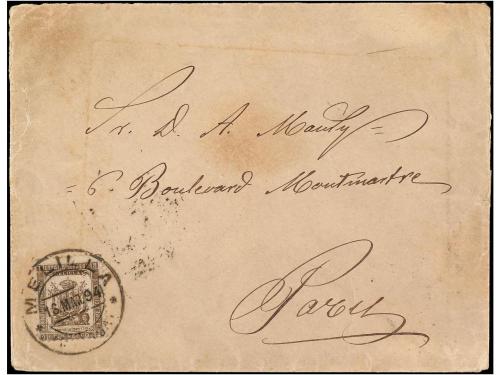 Sr. D. A. Maury =
= 6 Boulevard Montmartre
Paris
MELILLA
16 MAR 94